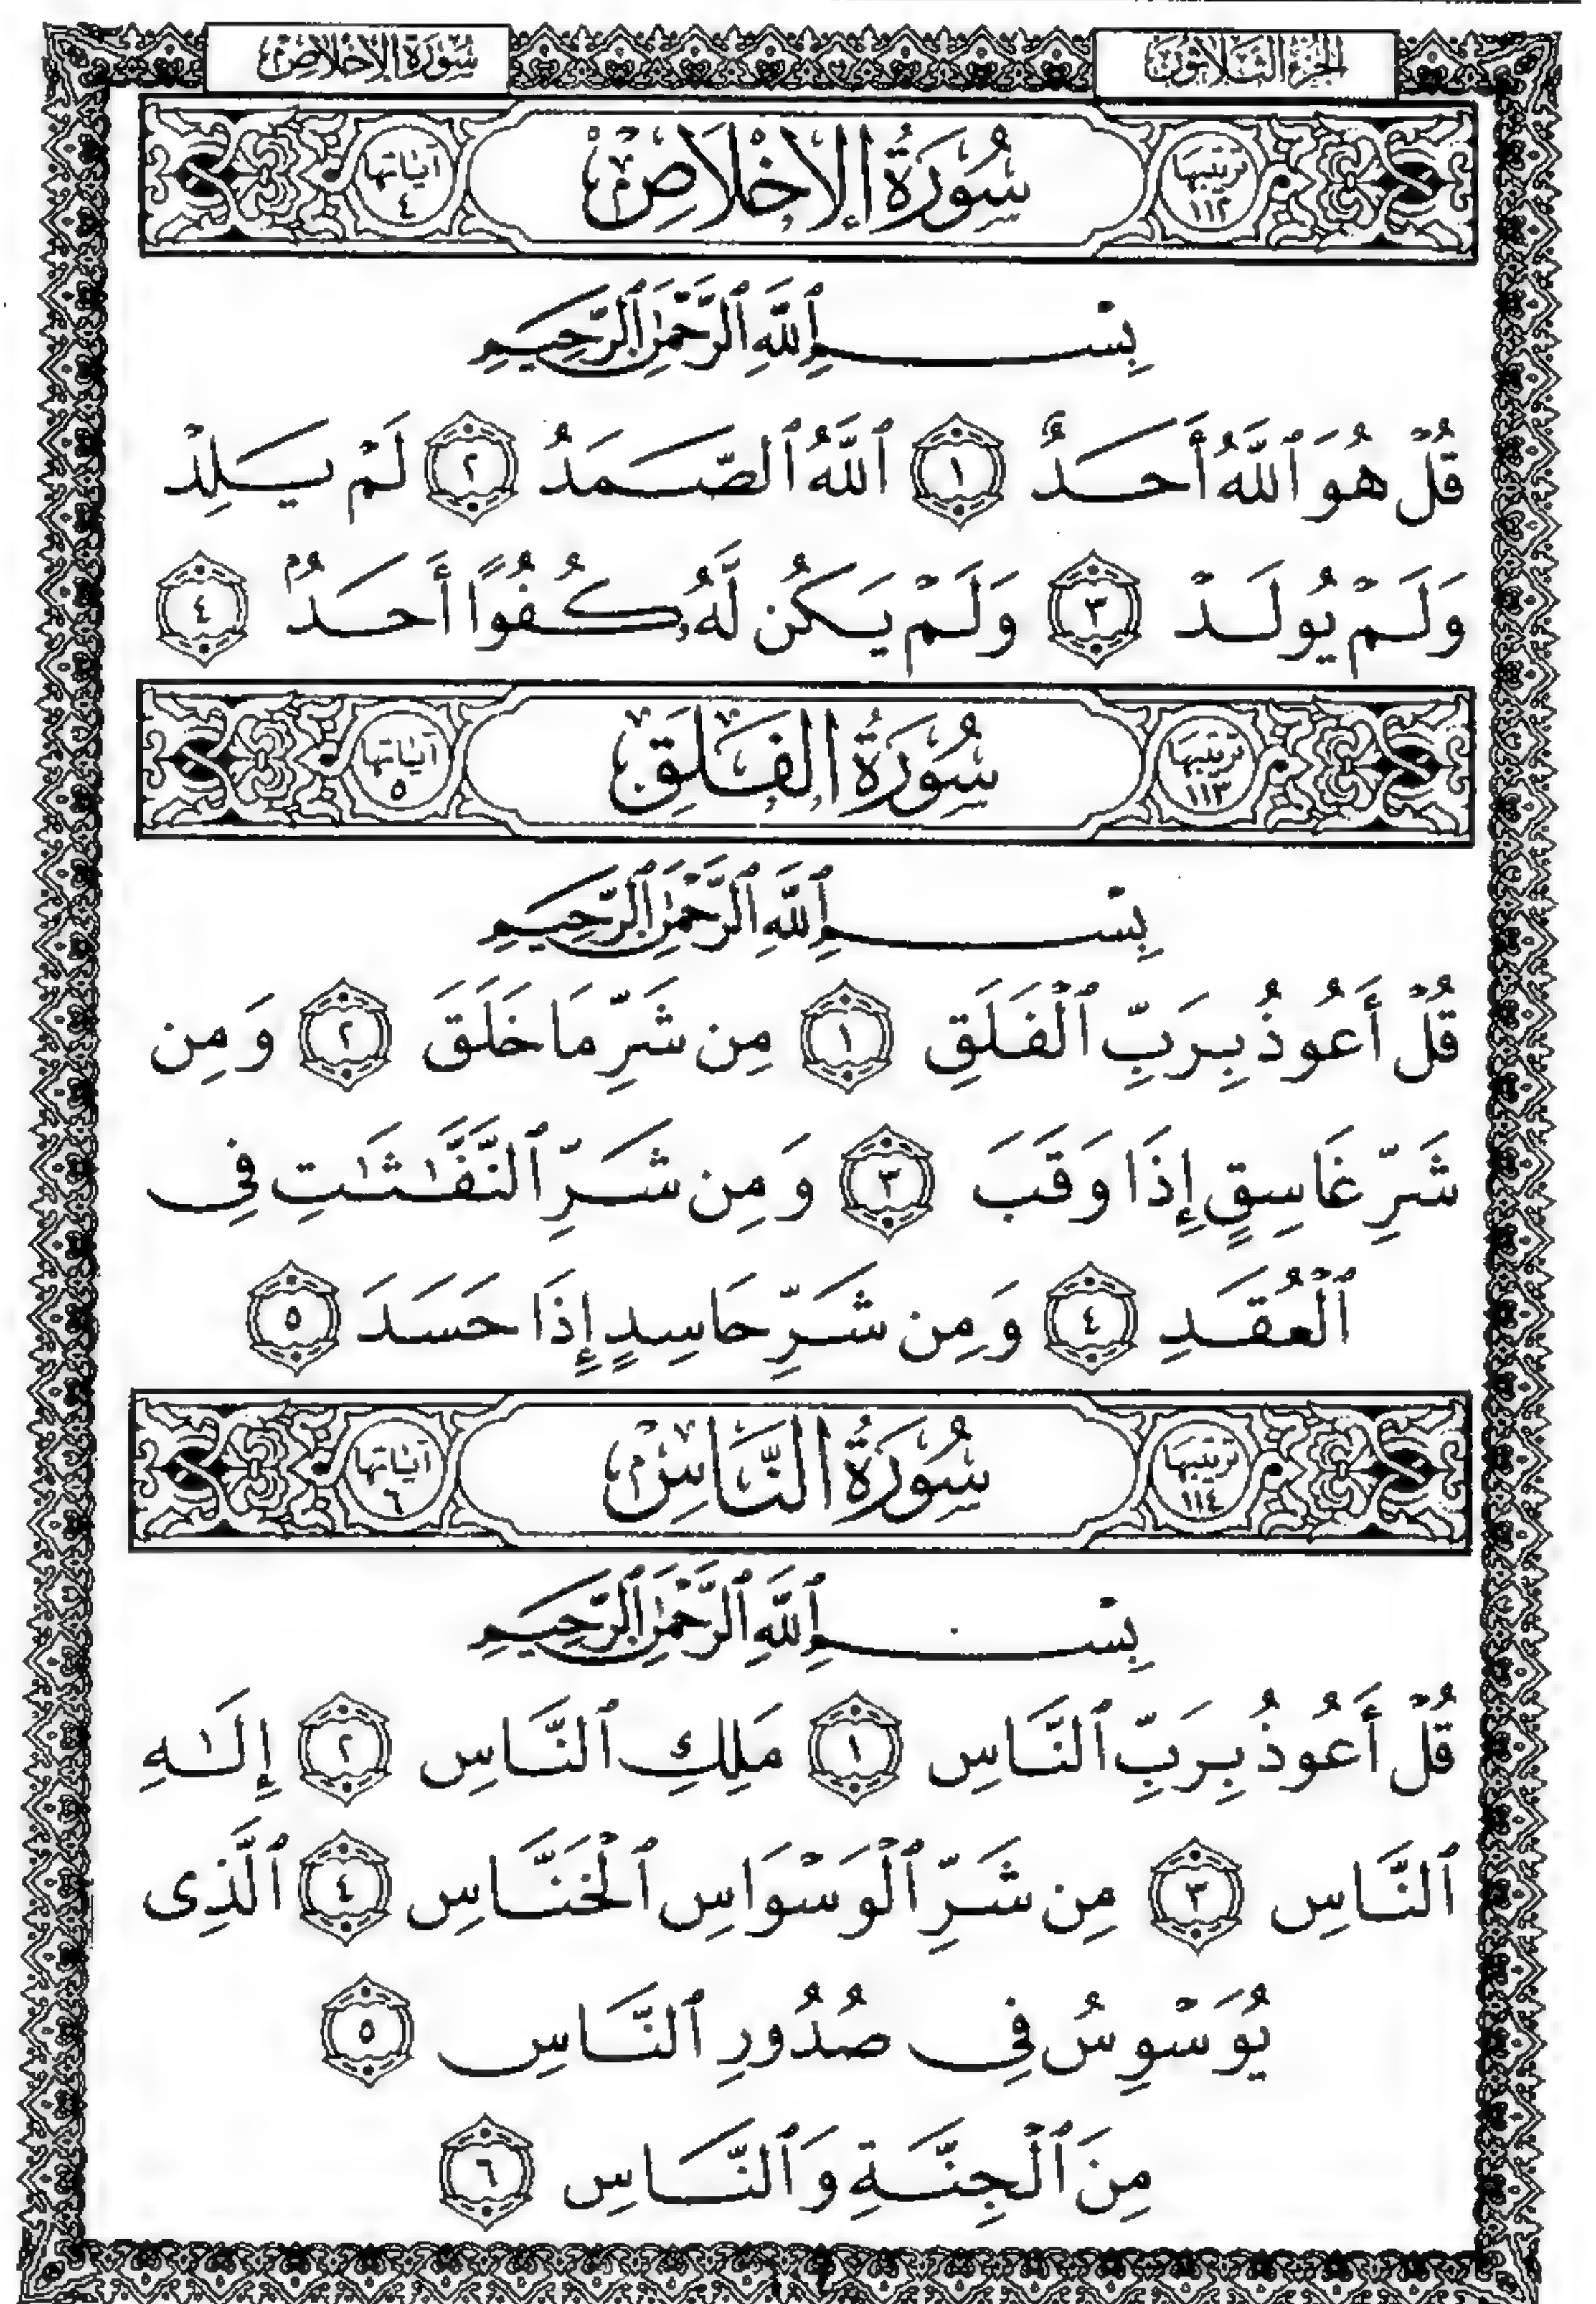 الجزء الثلاثون
سورة الإخلاص
ترتيبها ١١٢
سُورَةُ الإِخْلَاصِ
آياتها ٤
بِسْمِ ٱللَّهِ ٱلرَّحْمَٰنِ ٱلرَّحِيمِ
قُلْ هُوَ ٱللَّهُ أَحَدٌ ١ ٱللَّهُ ٱلصَّمَدُ ٢ لَمْ يَلِدْ
وَلَمْ يُولَدْ ٣ وَلَمْ يَكُن لَّهُۥ كُفُوًا أَحَدٌۢ ٤
ترتيبها ١١٣
سُورَةُ الفَلَقِ
آياتها ٥
بِسْمِ ٱللَّهِ ٱلرَّحْمَٰنِ ٱلرَّحِيمِ
قُلْ أَعُوذُ بِرَبِّ ٱلْفَلَقِ ١ مِن شَرِّ مَا خَلَقَ ٢ وَمِن
شَرِّ غَاسِقٍ إِذَا وَقَبَ ٣ وَمِن شَرِّ ٱلنَّفَّٰثَٰتِ فِى
ٱلْعُقَدِ ٤ وَمِن شَرِّ حَاسِدٍ إِذَا حَسَدَ ٥
ترتيبها ١١٤
سُورَةُ النَّاسِ
آياتها ٦
بِسْمِ ٱللَّهِ ٱلرَّحْمَٰنِ ٱلرَّحِيمِ
قُلْ أَعُوذُ بِرَبِّ ٱلنَّاسِ ١ مَلِكِ ٱلنَّاسِ ٢ إِلَٰهِ
ٱلنَّاسِ ٣ مِن شَرِّ ٱلْوَسْوَاسِ ٱلْخَنَّاسِ ٤ ٱلَّذِى
يُوَسْوِسُ فِى صُدُورِ ٱلنَّاسِ ٥
مِنَ ٱلْجِنَّةِ وَٱلنَّاسِ ٦